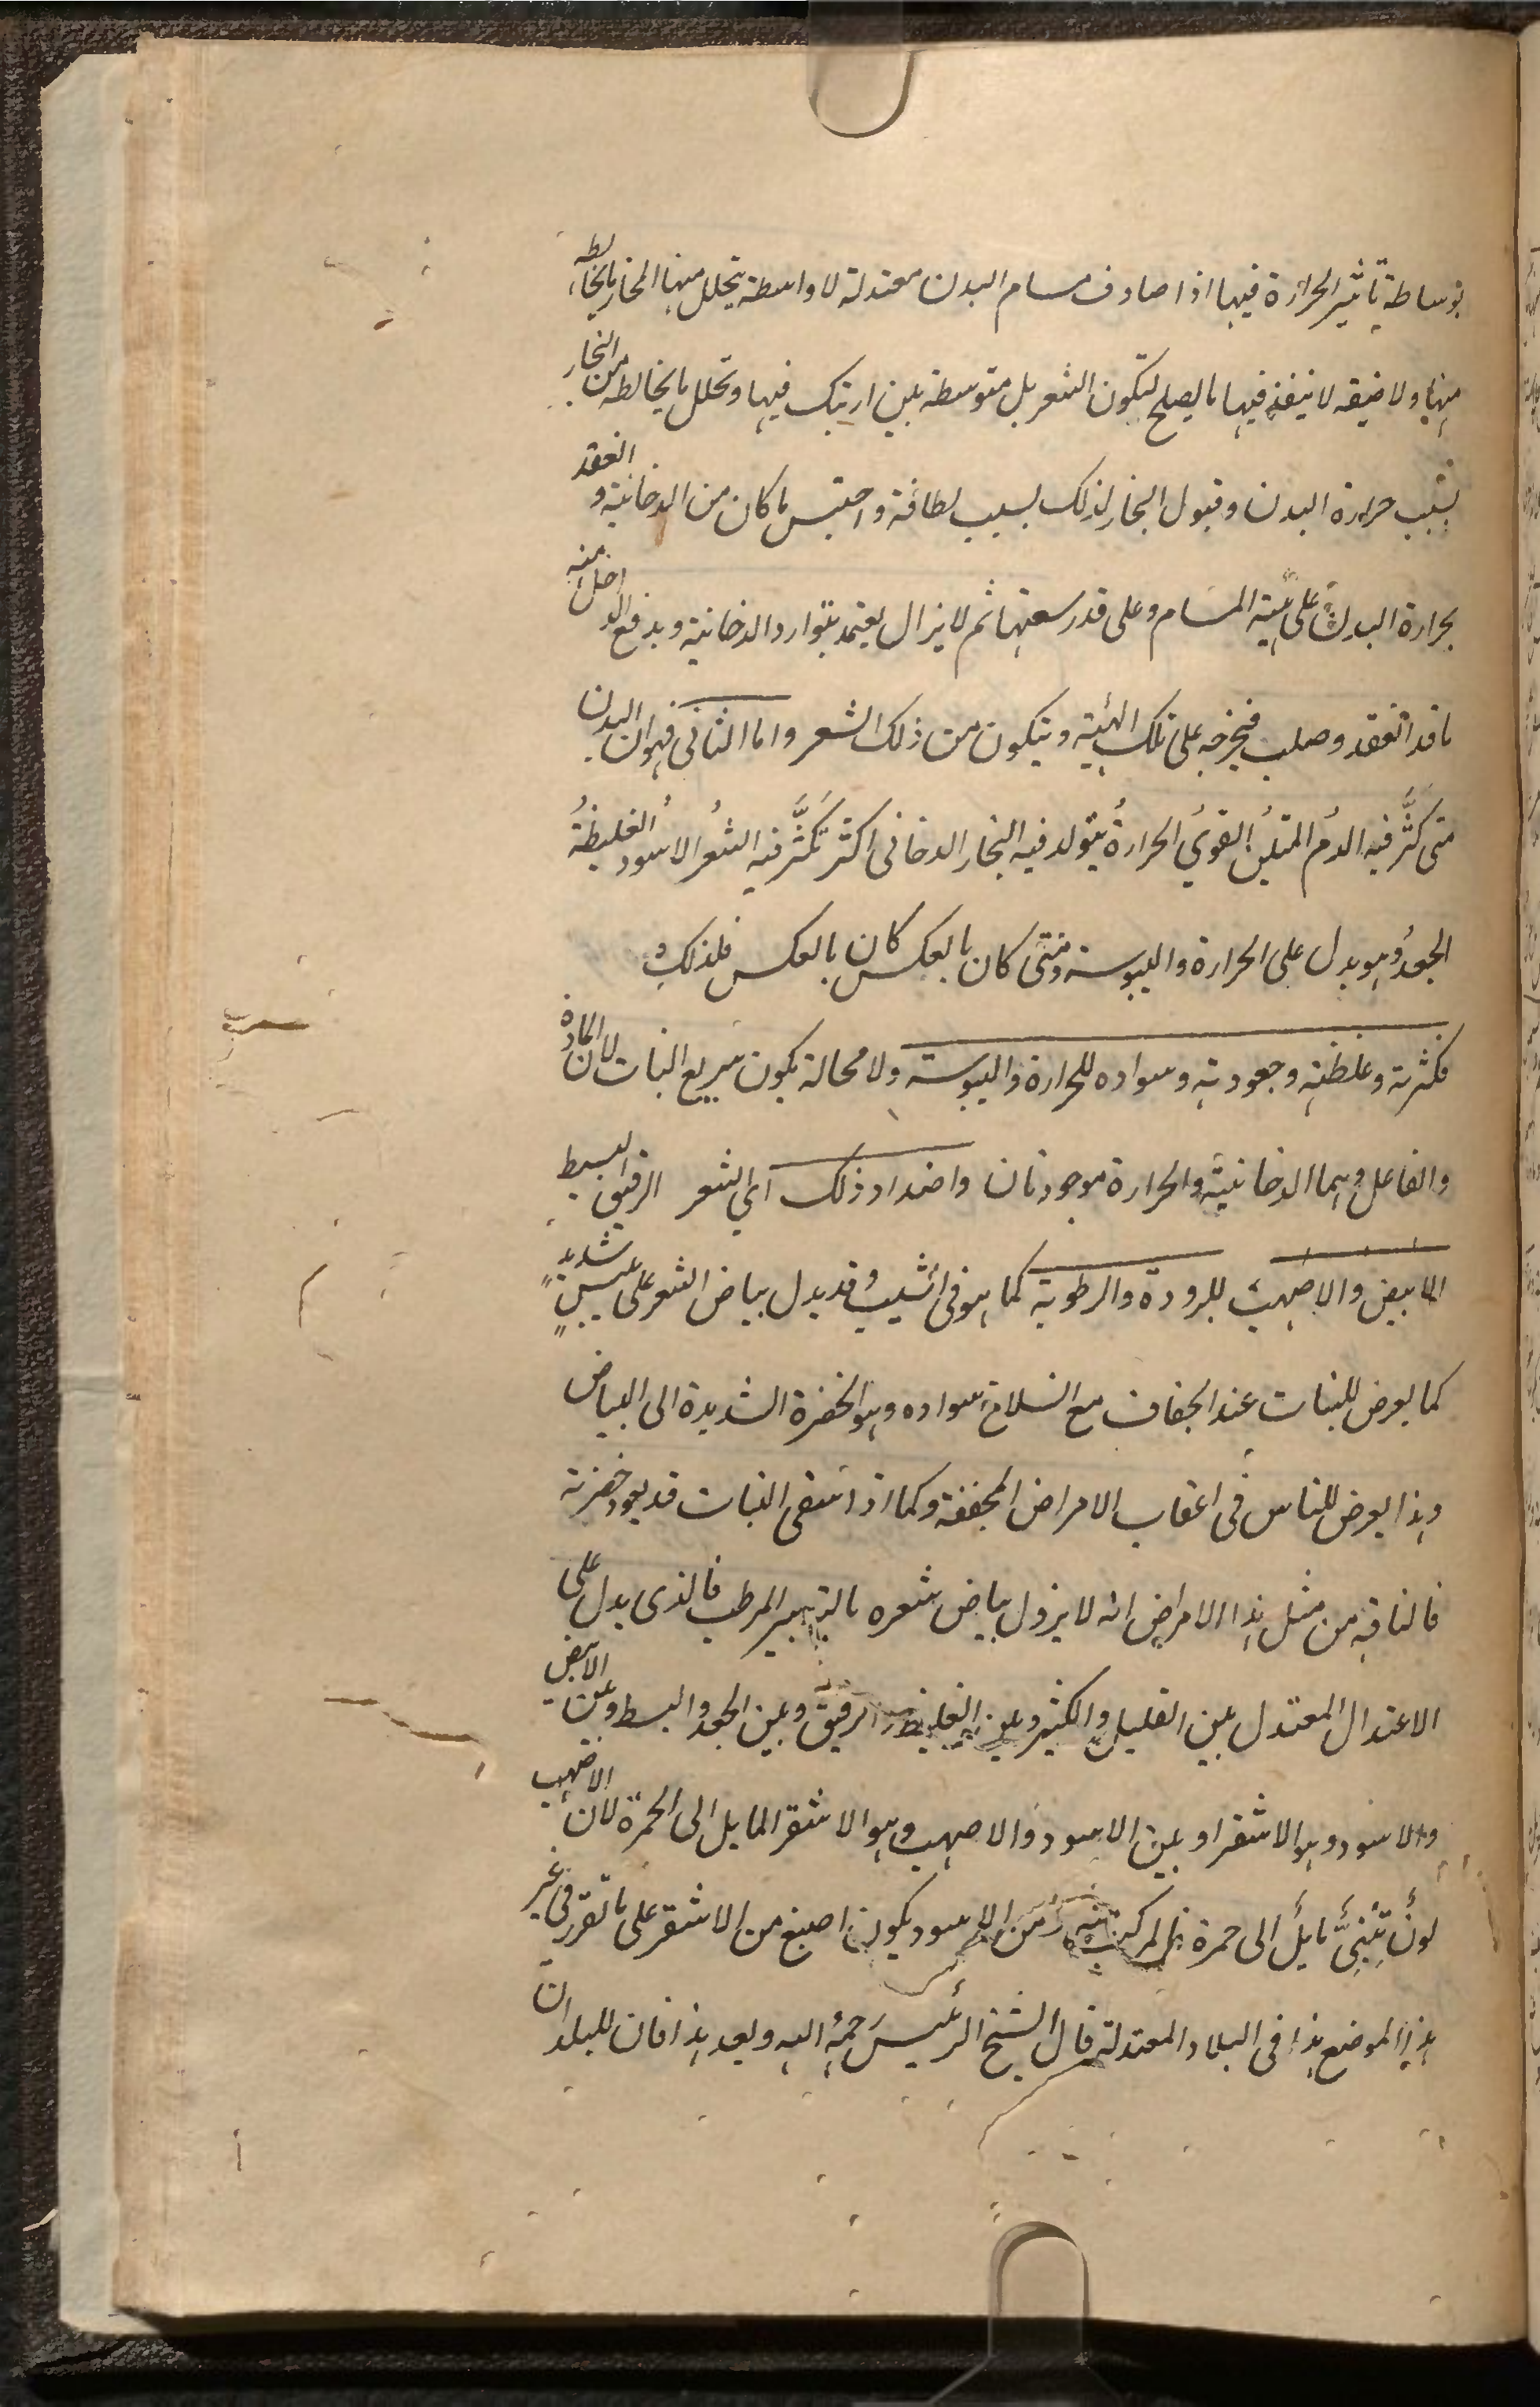 بوساطة تاثير الحرارة فيها اذا صادف مسام البدن معتدلة لا واسطة يتحلل منها البخار ما يخالطه
منها ولا ضيقه لا ينفذ فيها ما يصلح لتكون الشعر بل متوسطة بين ارتبك فيها وتحلل ما يخالطه من البخار
بسبب حرارة البدن وقبول البخار لذلك بسبب لطافة واحتبس ما كان من الدخانية و انعقد
بحرارة البدن على هيئة المسام وعلى قدر سعتها ثم لا يزال يعتمد بتوارد الدخانية ويدفع الداخل منه
ما قد انعقد وصلب فيخرجه على تلك الهيئة ويتكون من ذلك الشعر واما الثاني فهو ان البدن
متى كثر فيه الدم المتين القوي الحرارة يتولد فيه البخار الدخاني اكثر تكثر فيه الشعر الاسود الغليظة
الجعد وهو يدل على الحرارة واليبوسة ومتى كان بالعكس كان بالعكس فلذلك
فكثرته وغلظته وجعودته وسواده للحرارة واليبوسة ولا محالة يكون سريع النبات لان المادة
والفاعل وهما الدخانية والحرارة موجودتان واضداد ذلك اي الشعر الرقيق البسيط
الابيض والاصهب للبرودة والرطوبة كما هو في الشيب وقد يدل بياض الشعر على يبس شديد
كما يعرض للنبات عند الجفاف مع انسلاخ سواده وهو الخضرة الشديدة الى البياض
وهذا يعرض للناس في اعقاب الامراض المجففة وكما اذا سقى النبات قد يعود خضرته
فالناقه من مثل هذا الامراض انه لا يزول بياض شعره بالتدبير المرطب فالذى يدل على
الاعتدال المعتدل بين القليل والكثير وبين الغليظ والرقيق وبين الجعد والبسط وبين الابيض
والاسود وهو الاشقر او بين الاسود والاصهب وهو الاشقر المايل الى الحمرة لان الاصهب
لون تبني مايل الى حمرة من الاسود يكون اصبغ من الاشقر على ما تقرر في غير
هذا الموضع هذا في البلاد المعتدلة قال الشيخ الرئيس رحمه الله وبعد هذا فان للبلدان